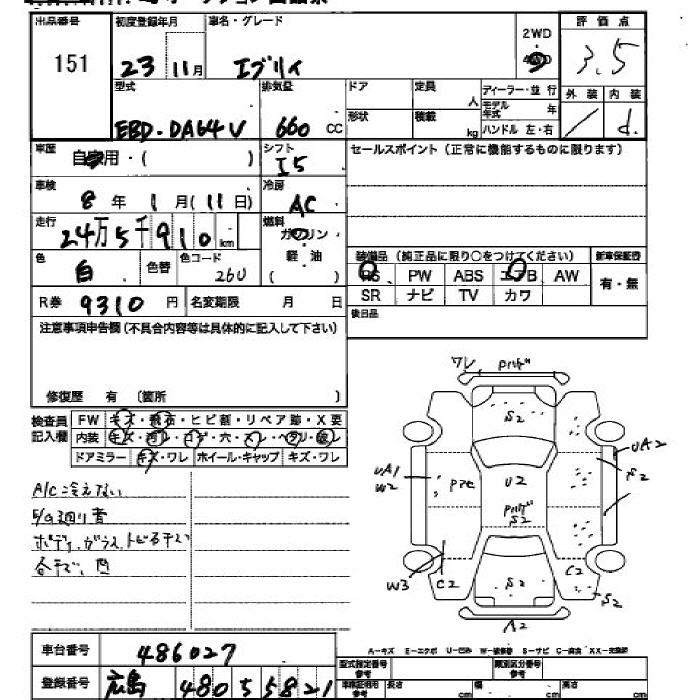 出品番号 初度登録年月 車名・グレード 評価点
151 23 11月 エブリイ 2WD 3.5
型式 排気量 ドア 定員 人 ディーラー・並行 外装 内装
EBD-DA64V 660 CC 形状 積載 kg モデル年式 年 ハンドル 左・右 / d.
車歴 自家用・( ) シフト I5 セールスポイント(正常に機能するものに限ります)
車検 8年 1月(11日) 冷房 AC
走行 24万5千910km 燃料 ガソリン
軽油
( )
色 白 色替 色コード 26U 装備品(純正品に限り○をつけてください) 新車保証書
PS PW ABS エアB AW 有・無
SR ナビ TV カワ
R券 9310円 名変期限 月 日 後日品
注意事項申告欄(不具合内容等は具体的に記入して下さい)
修復歴 有 (箇所 )
検査員記入欄 FW キズ・飛石・ヒビ割・リペア跡・X要
内装 キズ・汚レ・コゲ・穴・スレ・ヘタリ・破レ
ドアミラー キズ・ワレ ホイール・キャップ キズ・ワレ
A/C冷えない
E/G廻り音
ボディ、ガラス、トビ石キズ
各キズ、凹
ワレ Pハゲ
S2
UA2
S2
UA1
W2
U2
Pハゲ
S2
W3
C2
S2
C2
S2
A2
A-キズ E-エクボ U-凹み W-補修巻 S-サビ C-腐食 XX-交換済
車台番号 486027
登録番号 広島 480 5 5821
型式指定番号 類別区分番号
車庫証明用参考 長さ cm 幅 cm 高さ cm